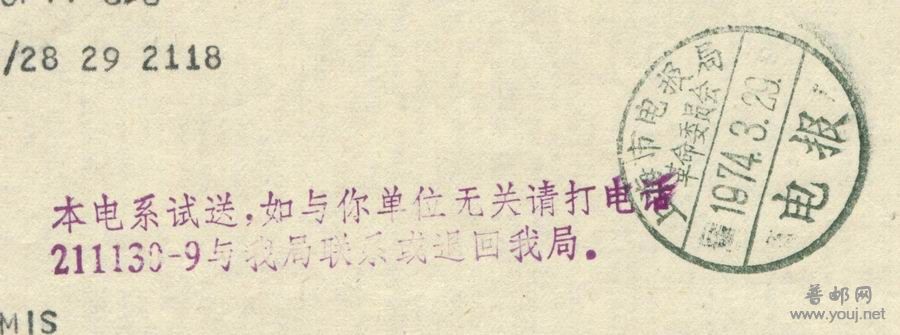 /28 29 2118
上海市电报局
革命委员会
1974.3.29.
电报
本电系试送,如与你单位无关请打电话
211130-9与我局联系或退回我局。
MIS
普邮网
www.youj.net